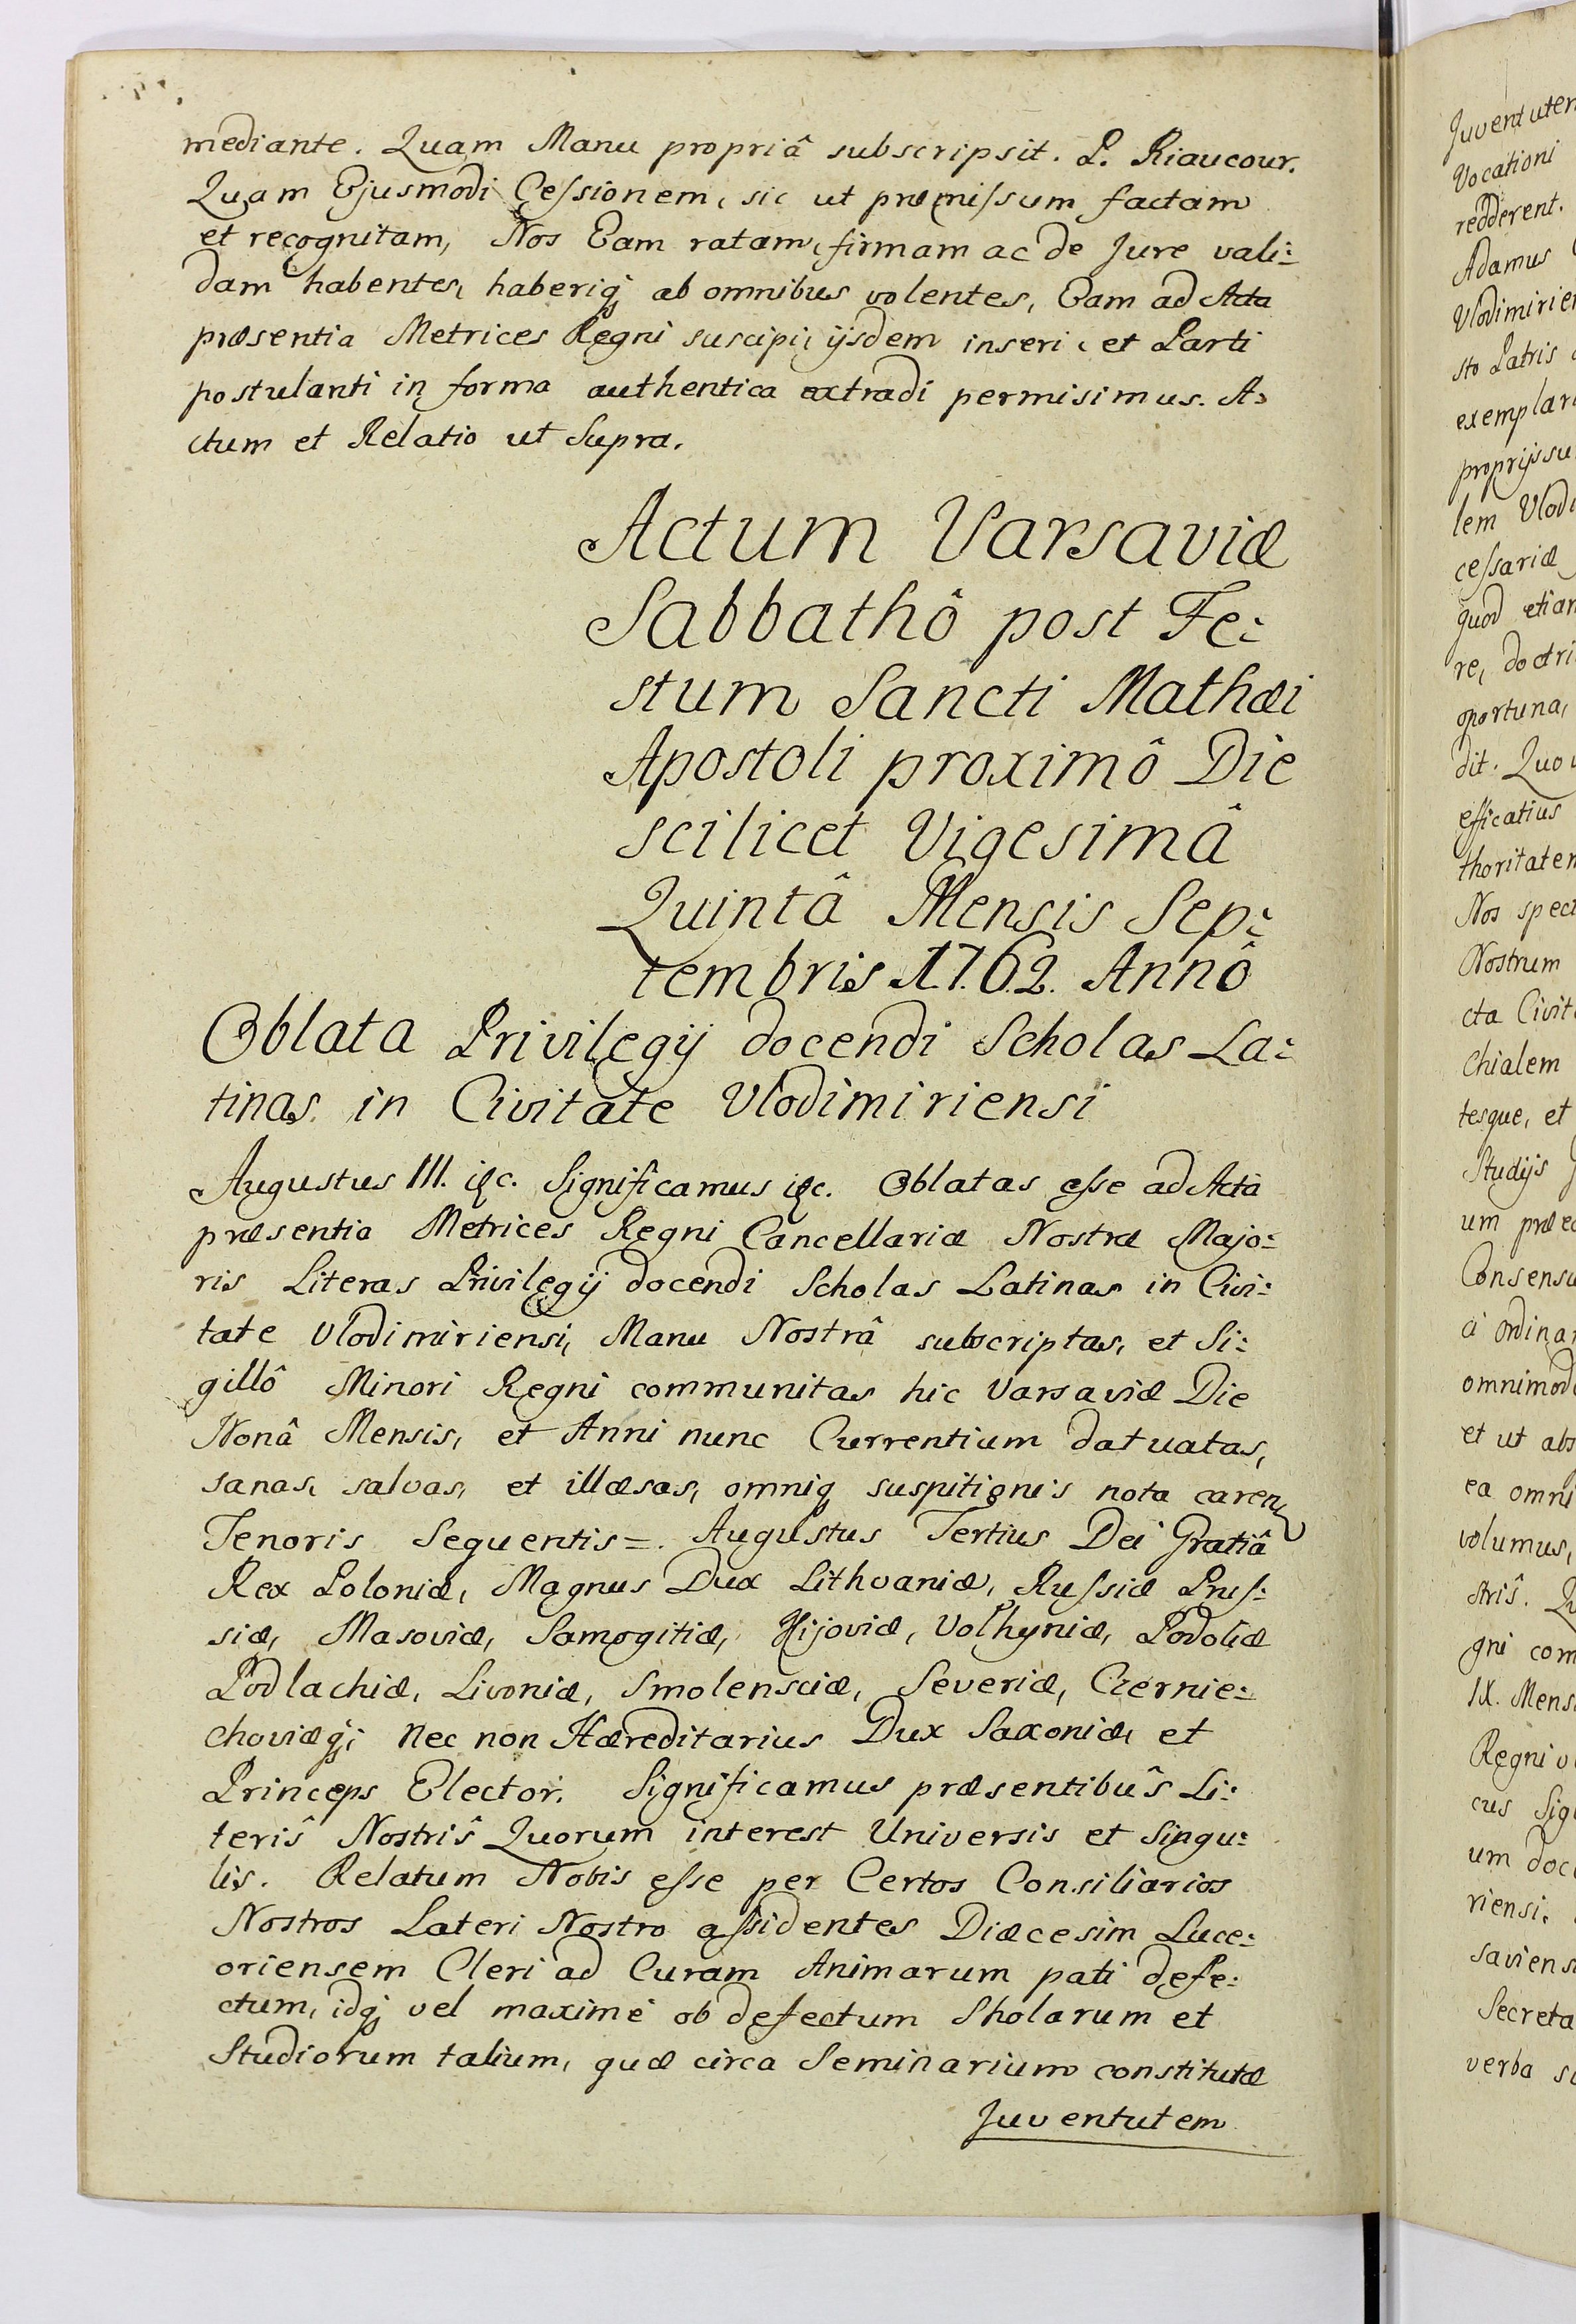 mediante. Quam Manu propriâ subscripsit. P. Riaucour.
Quam Ejusmodi Ceſsionem, sic ut præmiſsum factam
et recognitam, Nos Eam ratam, firmam ac de Jure vali:
dam habentes, haberiq́ ab omnibus volentes, Eam ad Acta
præsentia Metrices Regni suscipi, ijsdem inseri, et Parti
postulanti in forma authentica extradi permisimus. A:
ctum et Relatio ut Supra.
Actum Varsaviæ
Sabbathô post Fe:
stum Sancti Mathæi
Apostoli proximô Die
scilicet Vigesimâ
Quintâ Mensis Sep:
tembris 1762. Annô
Oblata Privilegij docendi Scholas La:
tinas in Civitate Vlodimiriensi
Augustus III. &c. Significamus &c. Oblatas eſse ad Acta
præsentia Metrices Regni Cancellariæ Nostræ Majo:
ris Literas Privilegij docendi Scholas Latinas in Civi:
tate Vlodimiriensi, Manu Nostrâ subscriptas, et Si:
gillô Minori Regni communitas hic Varsaviæ Die
Nonâ Mensis, et Anni nunc Currentium datuatas,
sanas, salvas, et illæsas, omniq suspitionis nota caren
Tenoris Sequentis =. Augustus Tertius Dei Gratiâ
Rex Poloniæ, Magnus Dux Lithvaniæ, Ruſsiæ Pruſ:
siæ, Masoviæ, Samogitiæ, Kijoviæ, Volhyniæ, Podoliæ
Podlachiæ, Livoniæ, Smolensciæ, Severiæ, Czernie:
choviæq́; nec non Hæreditarius Dux Saxoniæ, et
Princeps Elector. Significamus præsentibuŝ Li:
teriŝ Nostriŝ Quorum interest Universis et Singu:
lis. Relatum Nobis eſse per Certos Consiliarios
Nostros Lateri Nostro aſsidentes Diæcesim Luce:
oriensem Cleri ad Curam Animarum pati defe:
ctum, idq́ vel maximè ob defectum Sholarum et
Studiorum talium, quæ circa Seminarium constitutæ
Juventutem
Juventutem
Vocationi
redderent.
Adamus
Vlodimirien
sto Patris
exemplar
proprijs su
lem Vlodi
ceſsariæ
quod etiam
re, doctri
oportuna,
dit. Quo
efficatius
thoritatem
Nos spect
Nostrum
cta Civit
chialem
tesque, et
Studijs
um præ
Consensu
ordinar
omnimod
et ut abs
ea omni
volumus,
striŝ.
gni com
IX. Mens
Regni
cus Sig
um doc
riensi.
saviens
Secreta
verba